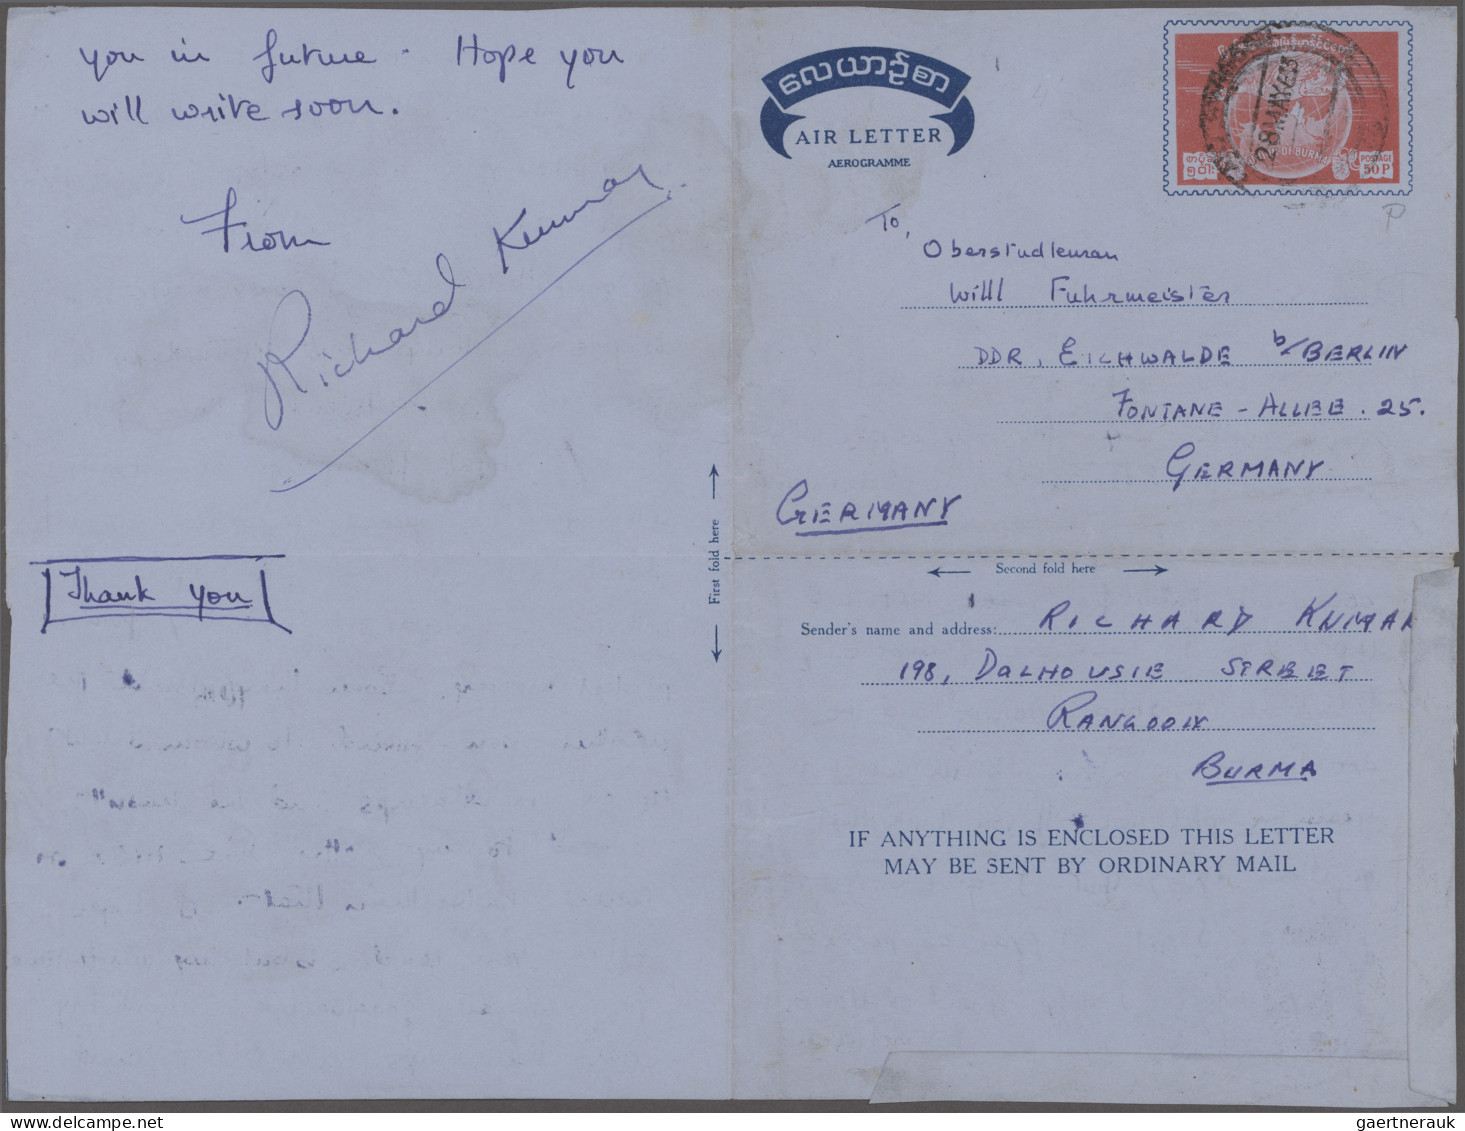 you in future. Hope you
will write soon.
From
Richard Kumar
Thank you
လေယာဉ်စာ
AIR LETTER
AEROGRAMME
28 MAY 63
OF BURMA
POSTAGE
50 P
P
To,
Oberstudleuran
Willl Fuhrmeister
DDR, EICHWALDE b/BERLIN
FONTANE - ALLEE . 25.
GERMANY
GERMANY
First fold here
Second fold here
Sender's name and address: RICHARD KUMAR
198, DALHOUSIE STREET
RANGOON
BURMA
IF ANYTHING IS ENCLOSED THIS LETTER
MAY BE SENT BY ORDINARY MAIL
gaertnerauk